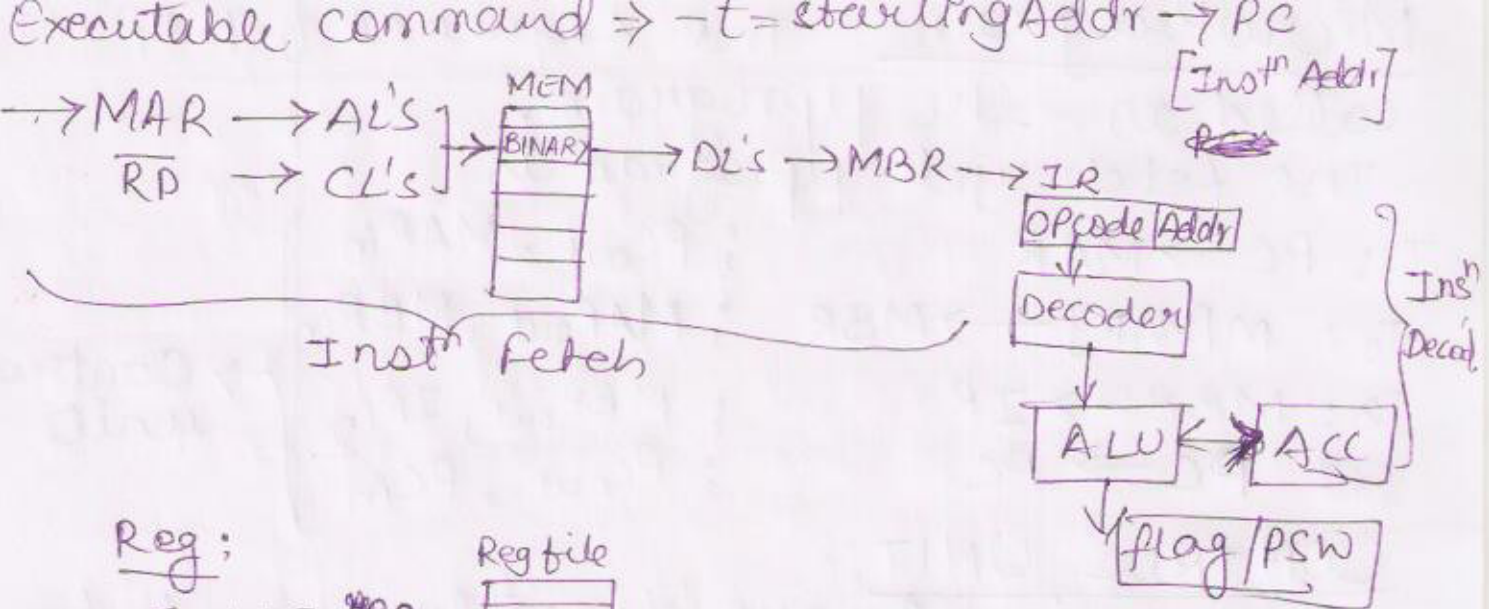 Executable command ⇒ -t = starting Addr → PC
[Instⁿ Addr]
→ MAR → AL's
MEM
R̅D̅ → CL's
BINARY → DL's → MBR → IR
OPcode | Addr
Decoder
Insⁿ
Decod.
Instⁿ Fetch
ALU ↔ ACC
flag / PSW
Reg:
Reg file